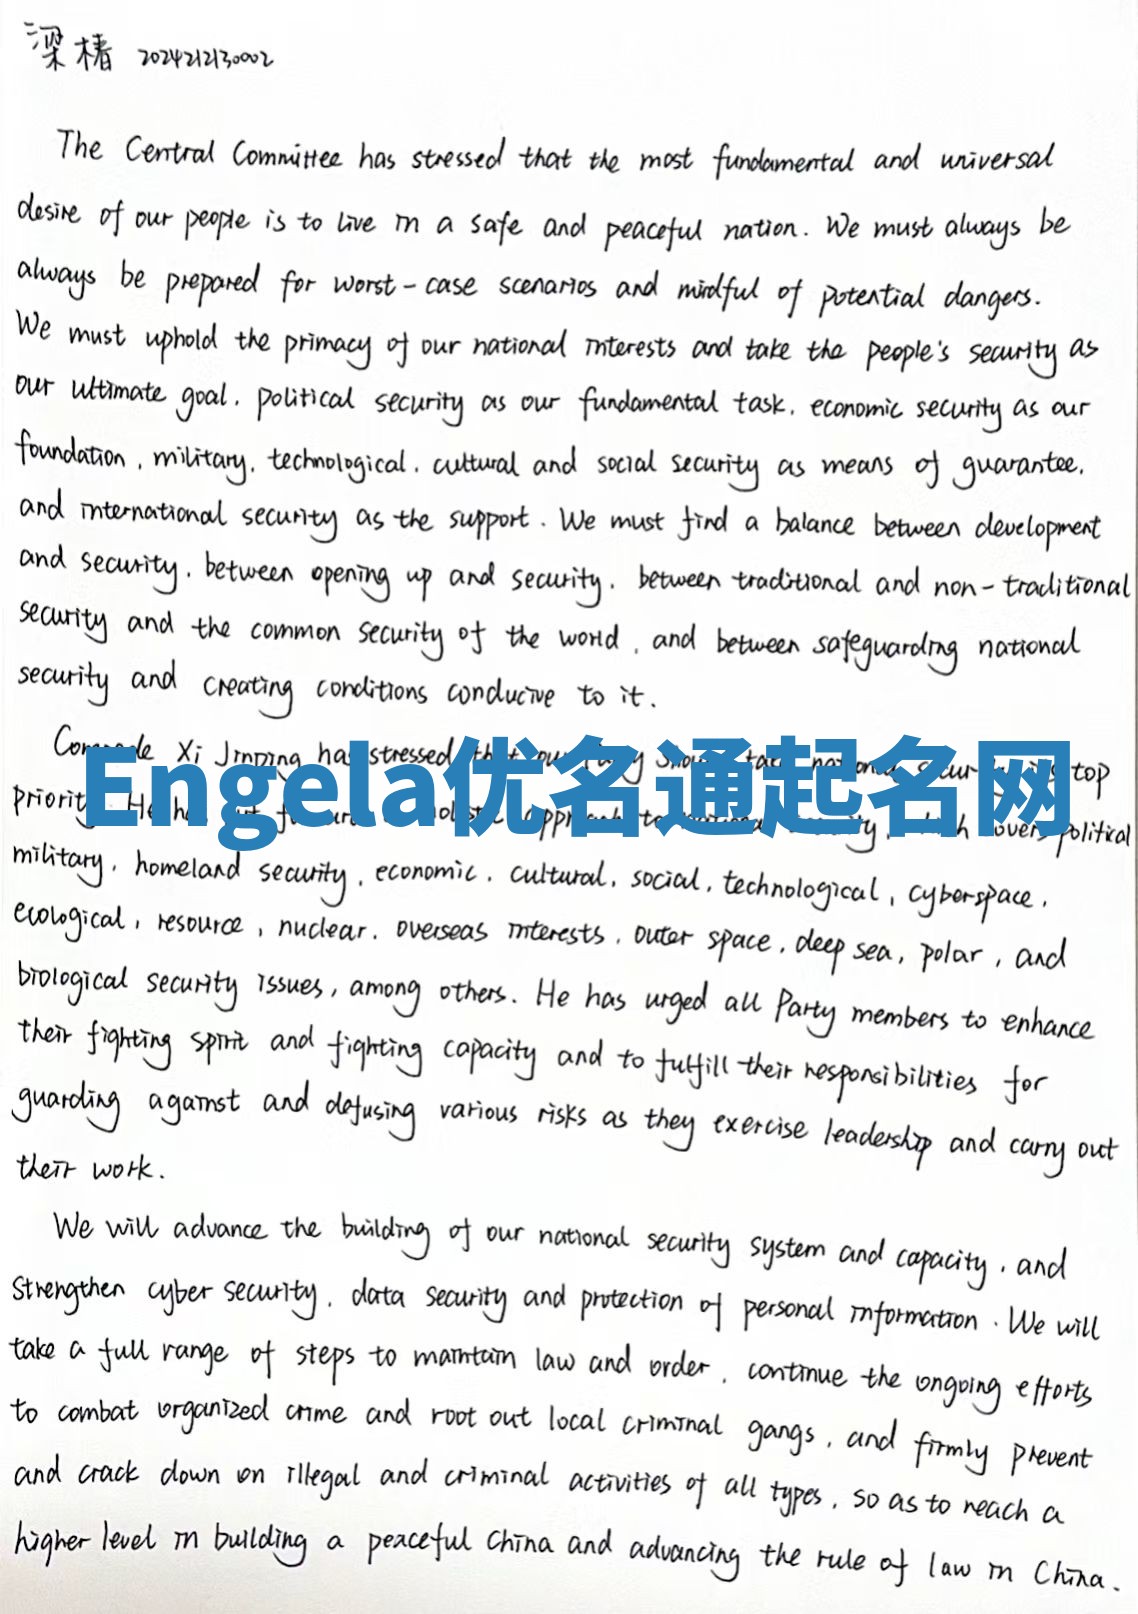 梁椿 2024212130002
The Central Committee has stressed that the most fundamental and universal
desire of our people is to live in a safe and peaceful nation. We must always be
always be prepared for worst-case scenarios and mindful of potential dangers.
We must uphold the primacy of our national interests and take the people's security as
our ultimate goal, political security as our fundamental task, economic security as our
foundation, military, technological, cultural and social security as means of guarantee,
and international security as the support. We must find a balance between development
and security, between opening up and security, between traditional and non-traditional
security and the common security of the world, and between safeguarding national
security and creating conditions conducive to it.
Comrade Xi Jinping has stressed that our Party should take national security top
Engela优名通起名网
priority. He has to political
military, homeland security, economic, cultural, social, technological, cyberspace,
ecological, resource, nuclear, overseas interests, outer space, deep sea, polar, and
biological security issues, among others. He has urged all Party members to enhance
their fighting spirit and fighting capacity and to fulfill their responsibilities for
guarding against and defusing various risks as they exercise leadership and carry out
their work.
We will advance the building of our national security system and capacity, and
strengthen cyber security, data security and protection of personal information. We will
take a full range of steps to maintain law and order, continue the ongoing efforts
to combat organized crime and root out local criminal gangs, and firmly prevent
and crack down on illegal and criminal activities of all types, so as to reach a
higher level in building a peaceful China and advancing the rule of law in China.